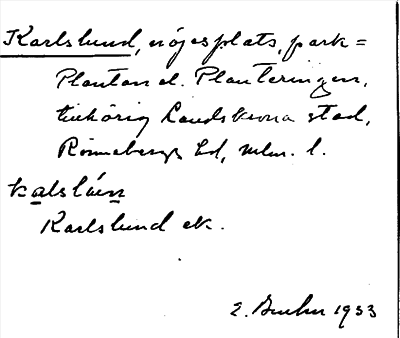 Karlslund, nöjesplats, park=
Plantan el. Planteringen,
tillhörig Landskrona stad,
Rönnebergs hd, Mlm. l.
kalslúnn
Karlslund ek.
1933